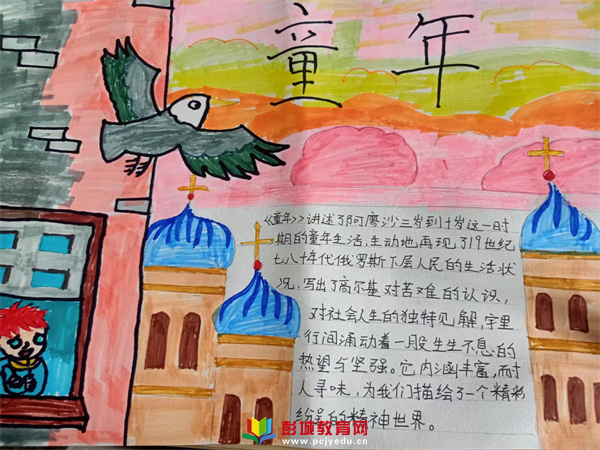 童年
《童年》讲述了阿廖沙三岁到十岁这一时
期的童年生活,生动地再现了19世纪
七八十年代俄罗斯下层人民的生活状
况,写出了高尔基对苦难的认识,
对社会人生的独特见解,字里
行间涌动着一股生生不息的
热望与坚强。它内涵丰富,耐
人寻味,为我们描绘了一个精彩
纷呈的精神世界。
彭城教育网
www.pcjyedu.cn